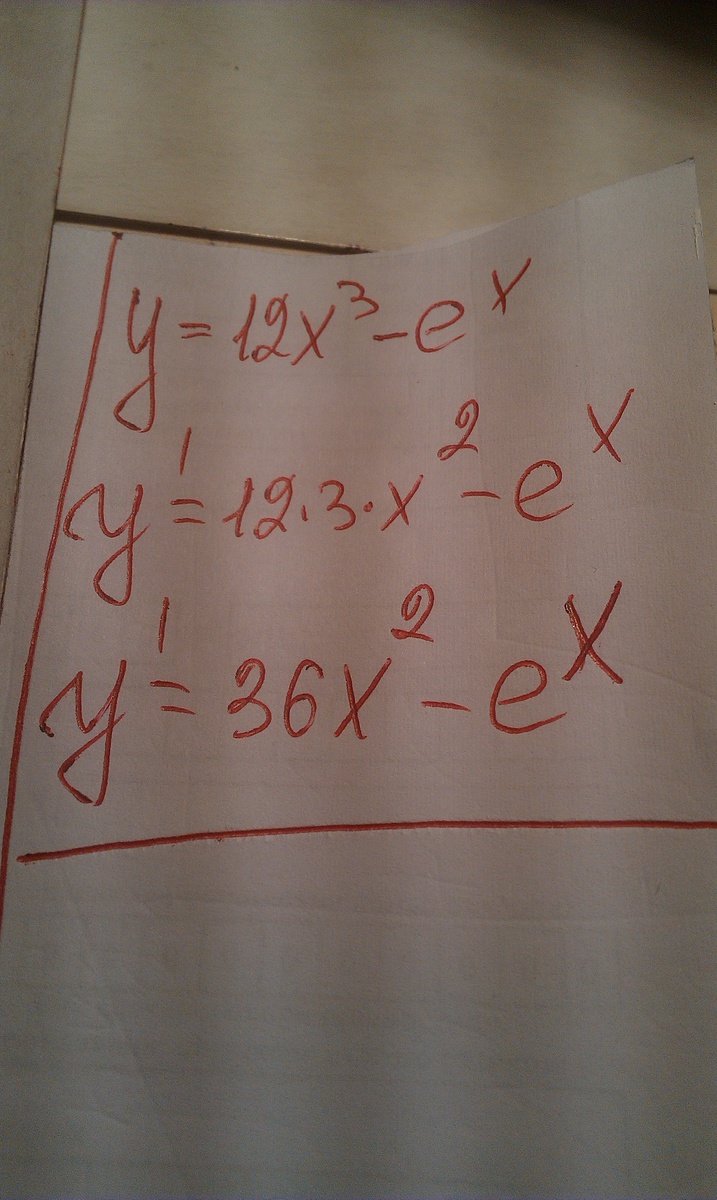 y = 12x³ - eˣ
y' = 12·3·x² - eˣ
y' = 36x² - eˣ